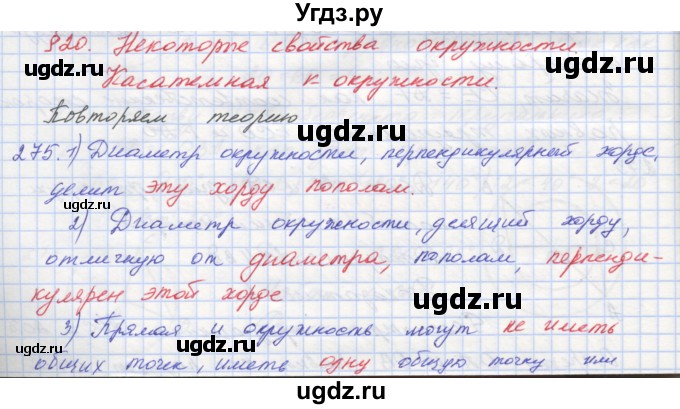 Угдз.ру
§20. Некоторые свойства окружности.
Касательная к окружности.
Повторяем теорию
275. 1) Диаметр окружности, перпендикулярный хорде,
делит эту хорду пополам.
2) Диаметр окружности, делящий хорду,
отличную от диаметра, пополам, перпенди-
кулярен этой хорде
3) Прямая и окружность могут не иметь
общих точек, иметь одну общую точку или
ugdz.ru
ugdz.ru
ugdz.ru
ugdz.ru
ugdz.ru
ugdz.ru
ugdz.ru
ugdz.ru
ugdz.ru
ugdz.ru
ugdz.ru
ugdz.ru
ugdz.ru
Угдз.ру